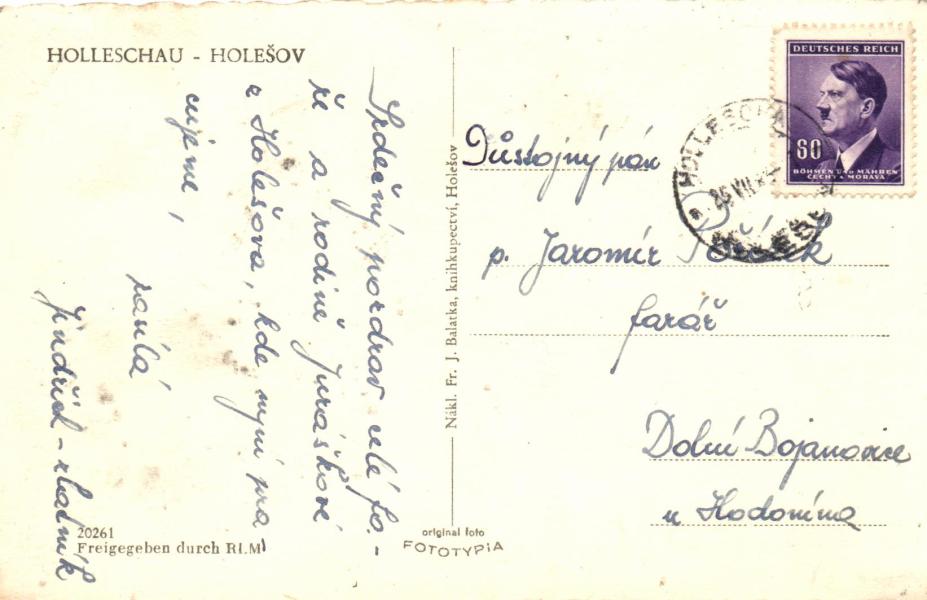 HOLLESCHAU - HOLEŠOV
Srdečný pozdrav celé fa-
ře a rodině Juráškové
z Holešova, kde nyní pra
cujeme,
Jindřich - zlatník
Nákl. Fr. J. Balatka, knihkupectví, Holešov
20261
Freigegeben durch RLM
original foto
FOTOTYPIA
DEUTSCHES REICH
60
BÖHMEN UND MÄHREN
ČECHY A MORAVA
HOLLESCHAU
HOLEŠOV
Důstojný pán
p. Jaromír
farář
Dolní Bojanovice
u Hodonína